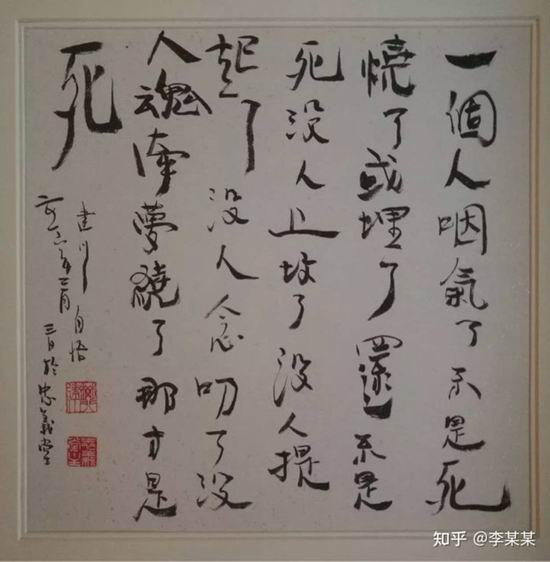 一個人咽氣了不是死
燒了或埋了還不是
死没人上坟了没人提
起了没人念叨了没
人魂牽夢繞了那才是
死
建川自悟
六年二月三日於忠義堂
知乎 @李某某